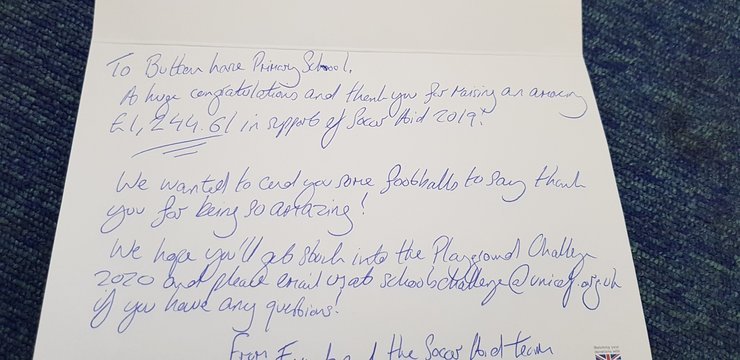 To Button Lane Primary School,
A huge congratulations and thank you for raising an amazing
£1,244.61 in support of Soccer Aid 2019!
We wanted to send you some footballs to say thank
you for being so amazing!
We hope you'll get stuck into the Playground Challenge
2020 and please email us at schoolschallenge@unicef.org.uk
if you have any questions!
From and the Soccer Aid team